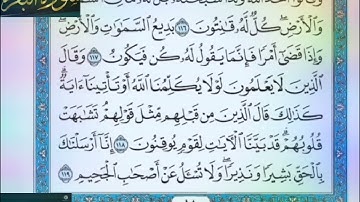 وَٱلْأَرْضِ ۖ كُلٌّ لَّهُۥ قَٰنِتُونَ ١١٦ بَدِيعُ ٱلسَّمَٰوَٰتِ وَٱلْأَرْضِ ۖ
وَإِذَا قَضَىٰٓ أَمْرًا فَإِنَّمَا يَقُولُ لَهُۥ كُن فَيَكُونُ ١١٧ وَقَالَ
ٱلَّذِينَ لَا يَعْلَمُونَ لَوْلَا يُكَلِّمُنَا ٱللَّهُ أَوْ تَأْتِينَآ ءَايَةٌ ۗ
كَذَٰلِكَ قَالَ ٱلَّذِينَ مِن قَبْلِهِم مِّثْلَ قَوْلِهِمْ ۘ تَشَٰبَهَتْ
قُلُوبُهُمْ ۗ قَدْ بَيَّنَّا ٱلْءَايَٰتِ لِقَوْمٍ يُوقِنُونَ ١١٨ إِنَّآ أَرْسَلْنَٰكَ
بِٱلْحَقِّ بَشِيرًا وَنَذِيرًا ۖ وَلَا تُسْـَٔلُ عَنْ أَصْحَٰبِ ٱلْجَحِيمِ ١١٩